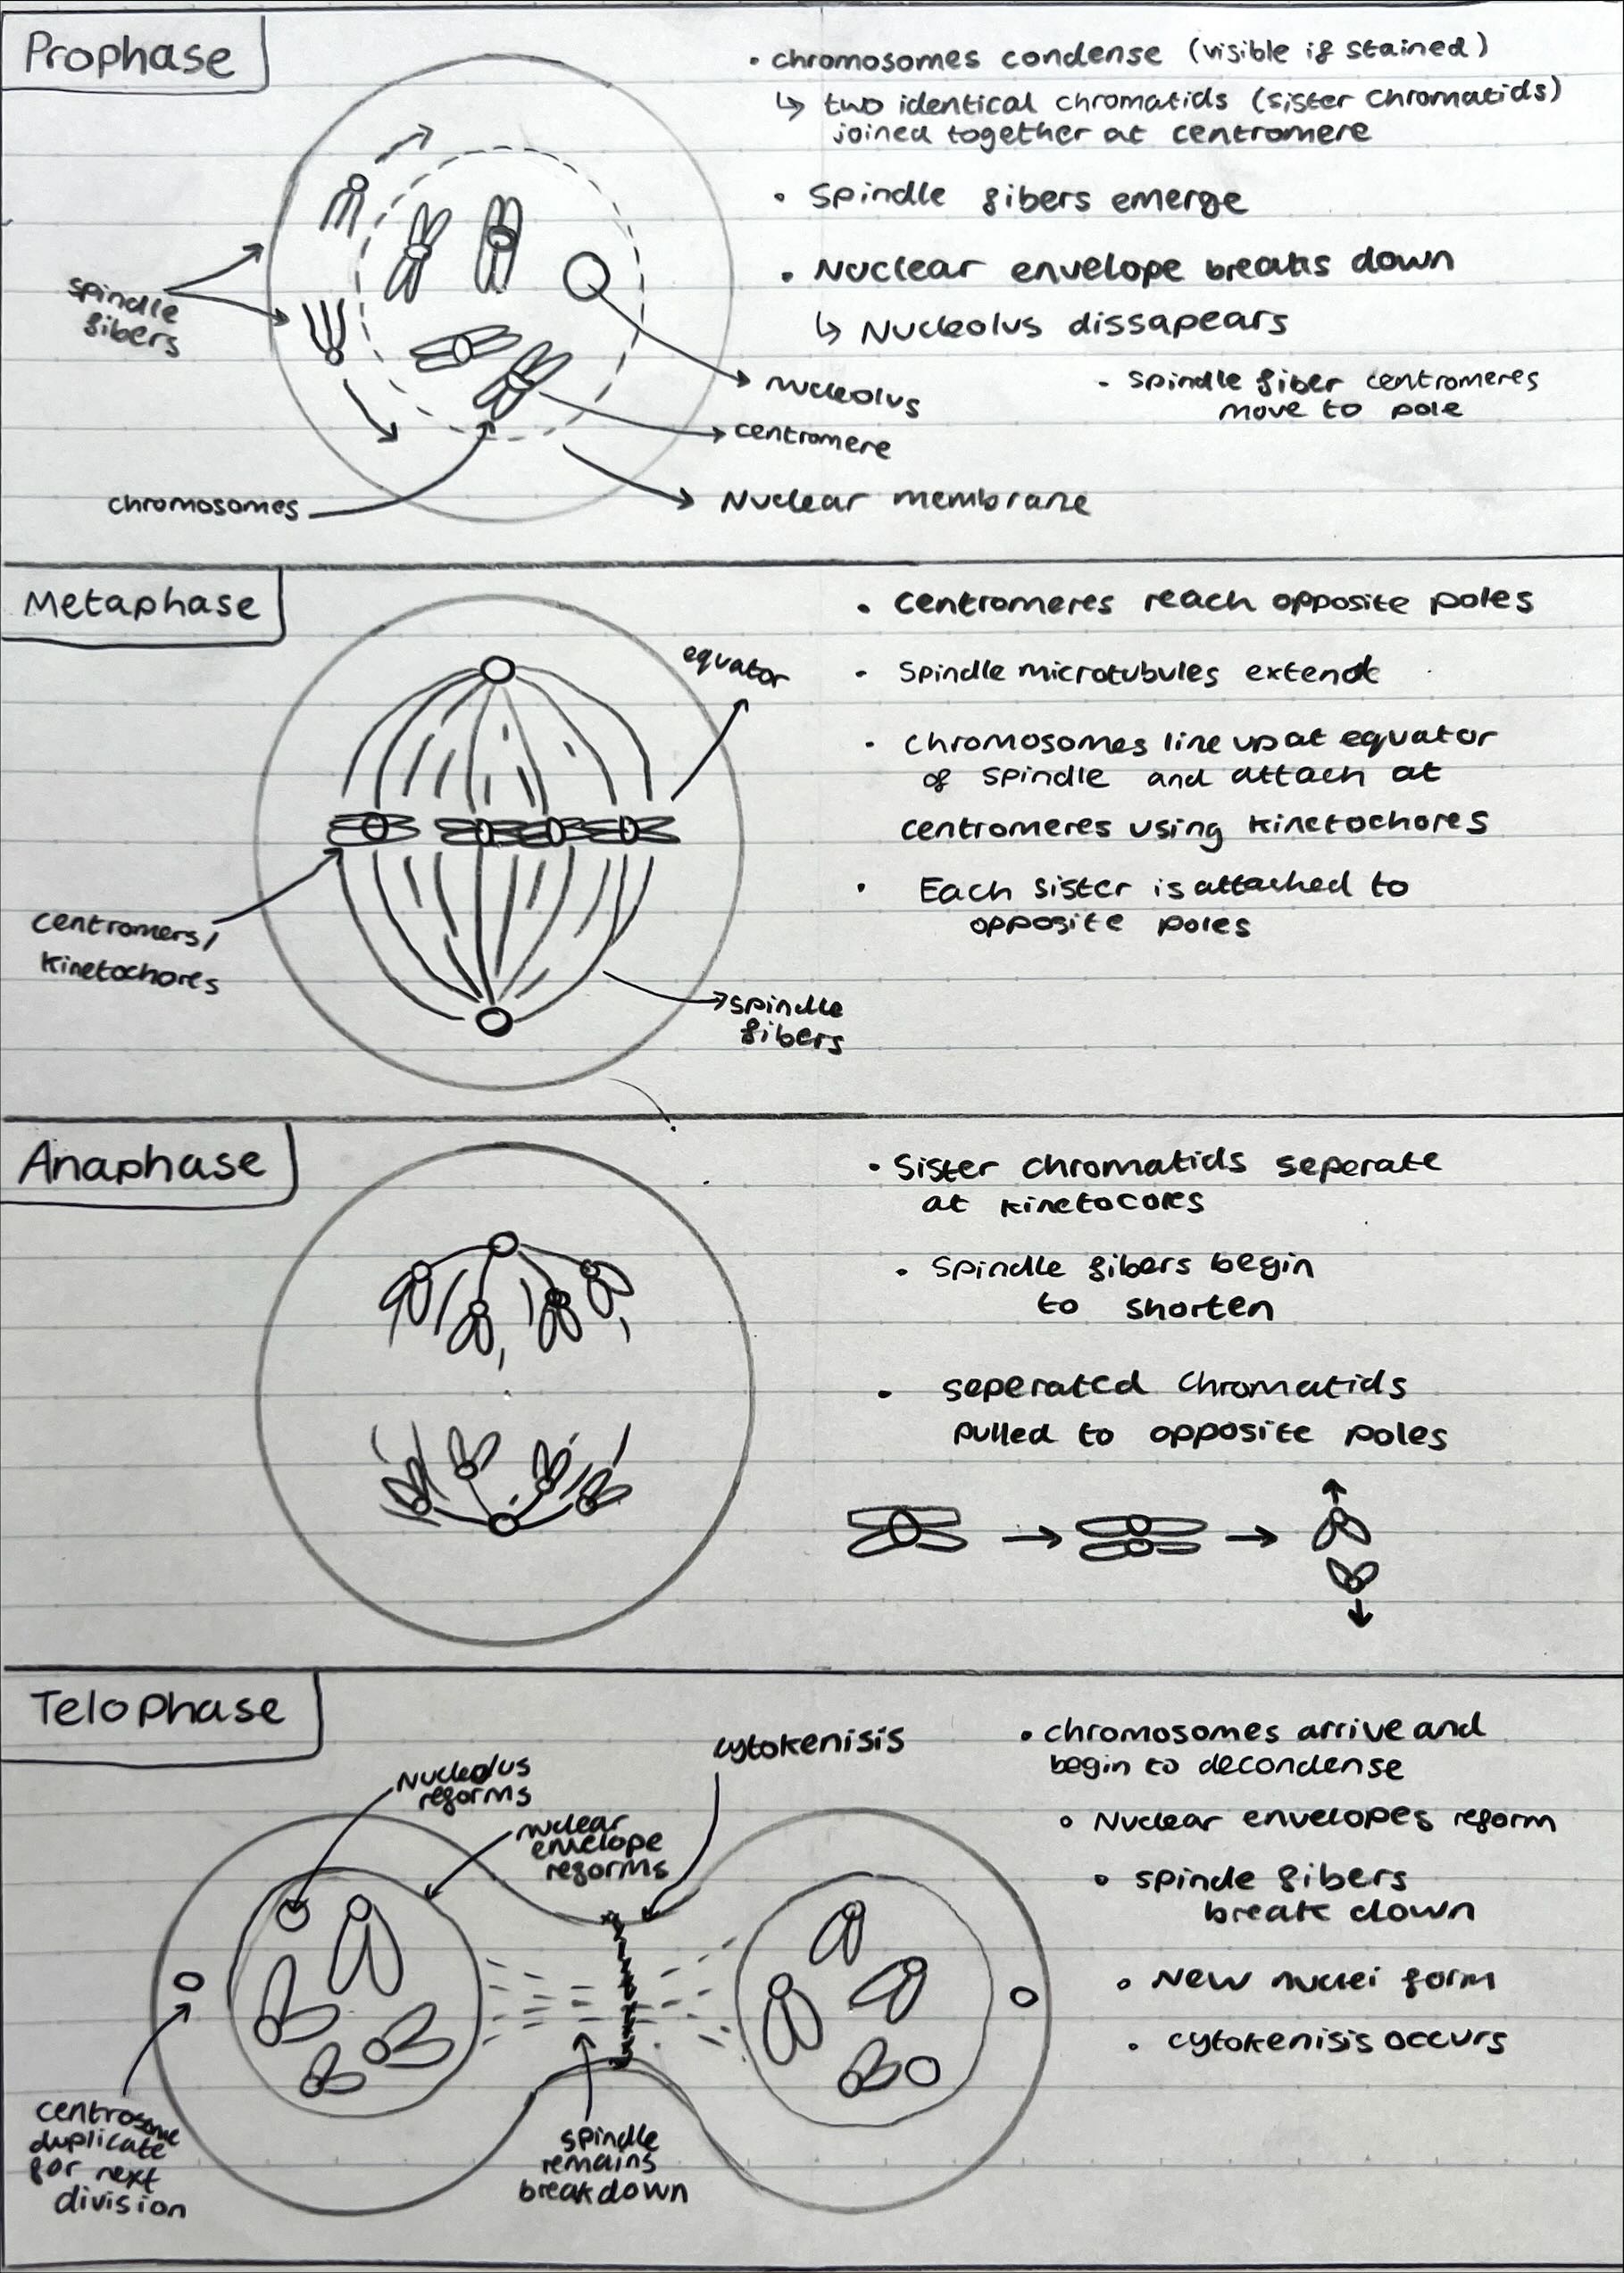 Prophase
• chromosomes condense (visible if stained)
↳ two identical chromatids (sister chromatids)
joined together at centromere
• Spindle fibers emerge
• Nuclear envelope breaks down
↳ Nucleolus dissapears
- spindle fiber centromeres
move to pole
spindle
fibers
nucleolus
centromere
chromosomes
Nuclear membrane
Metaphase
• Centromeres reach opposite poles
equator
• Spindle microtubules extend
• Chromosomes line up at equator
of spindle and attach at
centromeres using kinetochores
• Each sister is attached to
opposite poles
centromers/
kinetochores
spindle
fibers
Anaphase
• Sister chromatids seperate
at kinetocores
• Spindle fibers begin
to shorten
• seperated chromatids
pulled to opposite poles
Telophase
cytokenisis
Nucleolus
reforms
nuclear
envelope
reforms
• chromosomes arrive and
begin to decondense
• Nuclear envelopes reform
• spinde fibers
break down
• New nuclei form
• cytokenisis occurs
centrosome
duplicate
for next
division
spindle
remains
breakdown